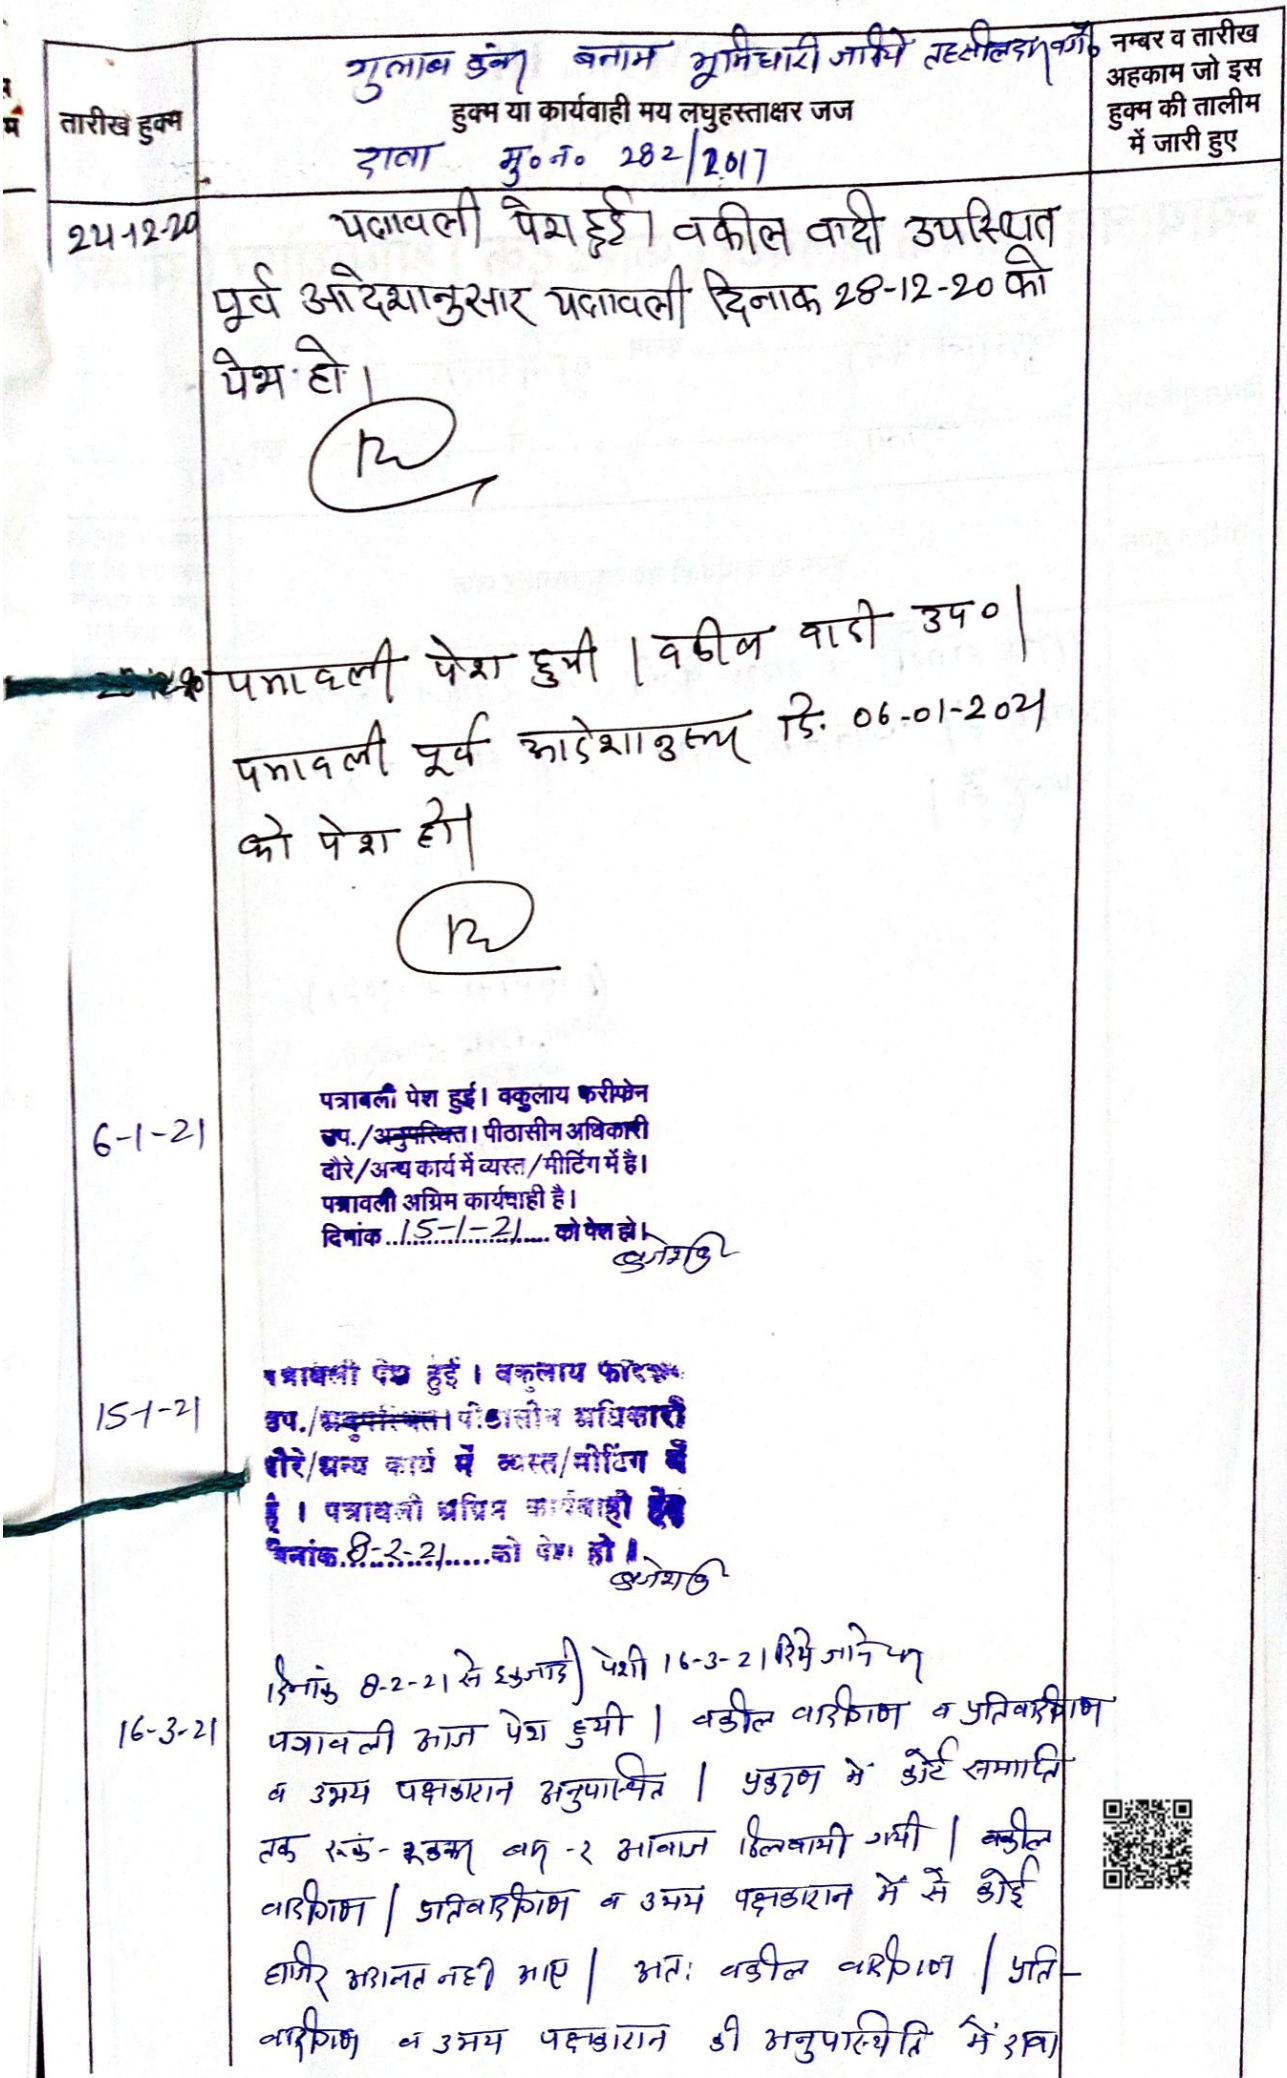 गुलाब कंवर बनाम भूमिधारी जरिये तहसीलदार वगै०
तारीख हुक्म
हुक्म या कार्यवाही मय लघुहस्ताक्षर जज
नम्बर व तारीख
अहकाम जो इस
हुक्म की तालीम
में जारी हुए
दावा मु०न० 282/2017
24-12-20
पत्रावली पेश हुई। वकील वादी उपस्थित
पूर्व आदेशानुसार पत्रावली दिनाक 28-12-20 को
पेश हो।
पत्रावली पेश हुयी । वकील वादी उप०।
पत्रावली पूर्व आदेशानुसार दि. 06-01-2021
को पेश हो।
6-1-21
पत्रावली पेश हुई। वकुलाय फरीकेन
उप./अनुपस्थित। पीठासीन अधिकारी
दौरे/अन्य कार्य में व्यस्त/मीटिंग में है।
पत्रावली अग्रिम कार्यवाही है।
दिनांक 15-1-21 को पेश हो।
15-1-21
पत्रावली पेश हुई । वकुलाय
उप./अनुपस्थित। पीठासीन अधिकारी
दौरे/अन्य कार्य में व्यस्त/मीटिंग में
है । पत्रावली अग्रिम कार्यवाही हेतु
दिनांक 8-2-21 को पेश हो ।
दिनांक 8-2-21 से पेशी 16-3-21 दिये जाने पर
16-3-21
पत्रावली आज पेश हुयी | वकील वादीगण व प्रतिवादीगण
व उभय पक्षकारान अनुपस्थित | प्रकरण में कोर्ट समाप्ति
तक रूक-रूककर बार-२ आवाज दिलवायी गयी | वकील
वादीगण | प्रतिवादीगण व उभय पक्षकारान में से कोई
हाजिर अदालत नही आए | अतः वकील वादीगण | प्रति-
वादीगण व उभय पक्षकारान की अनुपस्थिति में दावा